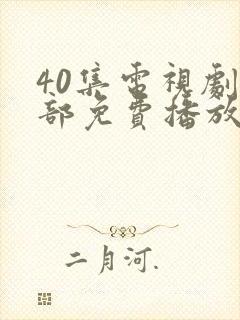 40集電視劇
部免費播放
二月河.